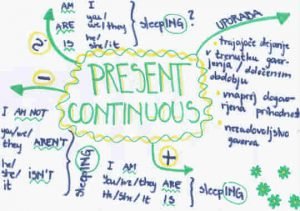 PRESENT
CONTINUOUS
?
AM I
ARE you/
we/they
IS he/
she/it
sleepING ?
UPORABA
• trajajoče dejanje
v trenutku govor-
jenja / določenim
obdobju
• vnaprej dogov-
rjena prihodnost
• nezadovoljstvo
govorca
-
I AM NOT
you/we/
they AREN'T
he/
she/ ISN'T
it
sleepING
+
I AM
You/we/they ARE
He/She/it IS
sleepING